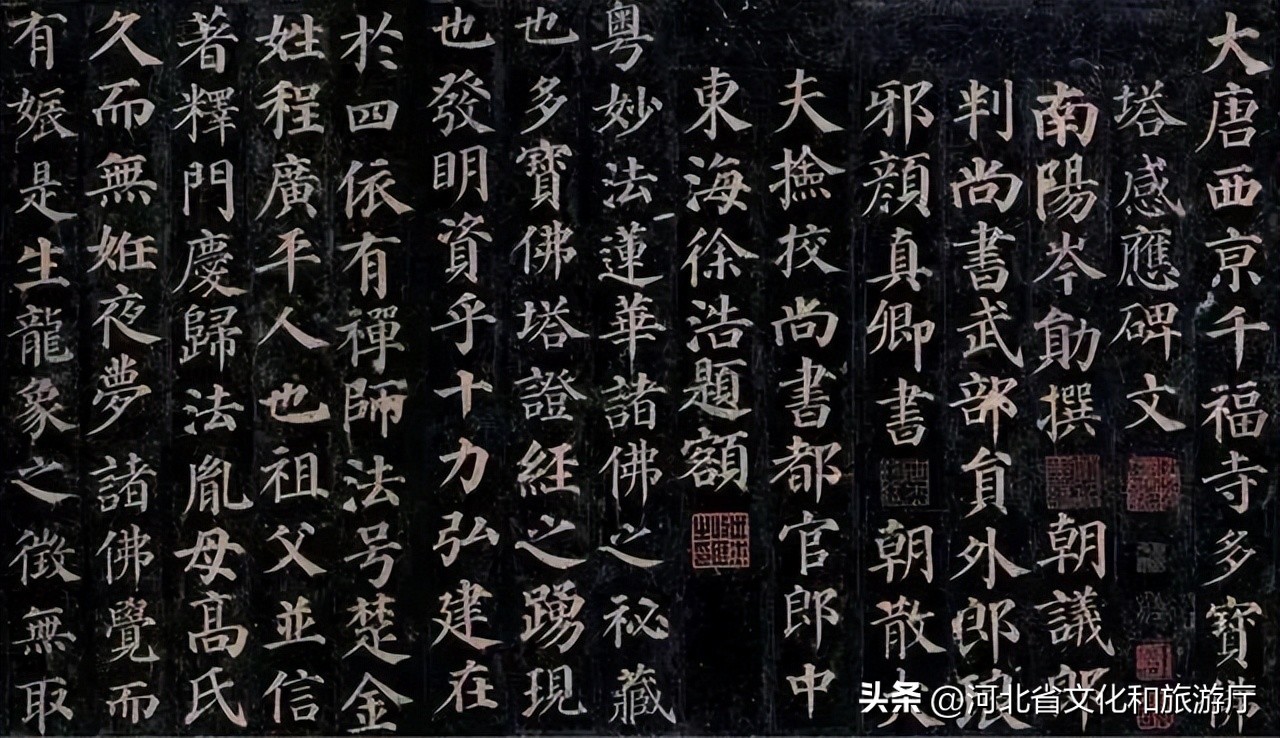 大唐西京千福寺多寶佛
塔感應碑文
南陽岑勛撰 朝議郎
判尚書武部員外郎琅
邪顏真卿書 朝散大
夫撿校尚書都官郎中
東海徐浩題額
粵妙法蓮華諸佛之祕藏
也多寶佛塔證經之踴現
也發明資乎十力弘建在
於四依有禪師法号楚金
姓程廣平人也祖父並信
著釋門慶歸法胤母高氏
久而無姙夜夢諸佛覺而
有娠是生龍象之徵無取
头条 @河北省文化和旅游厅